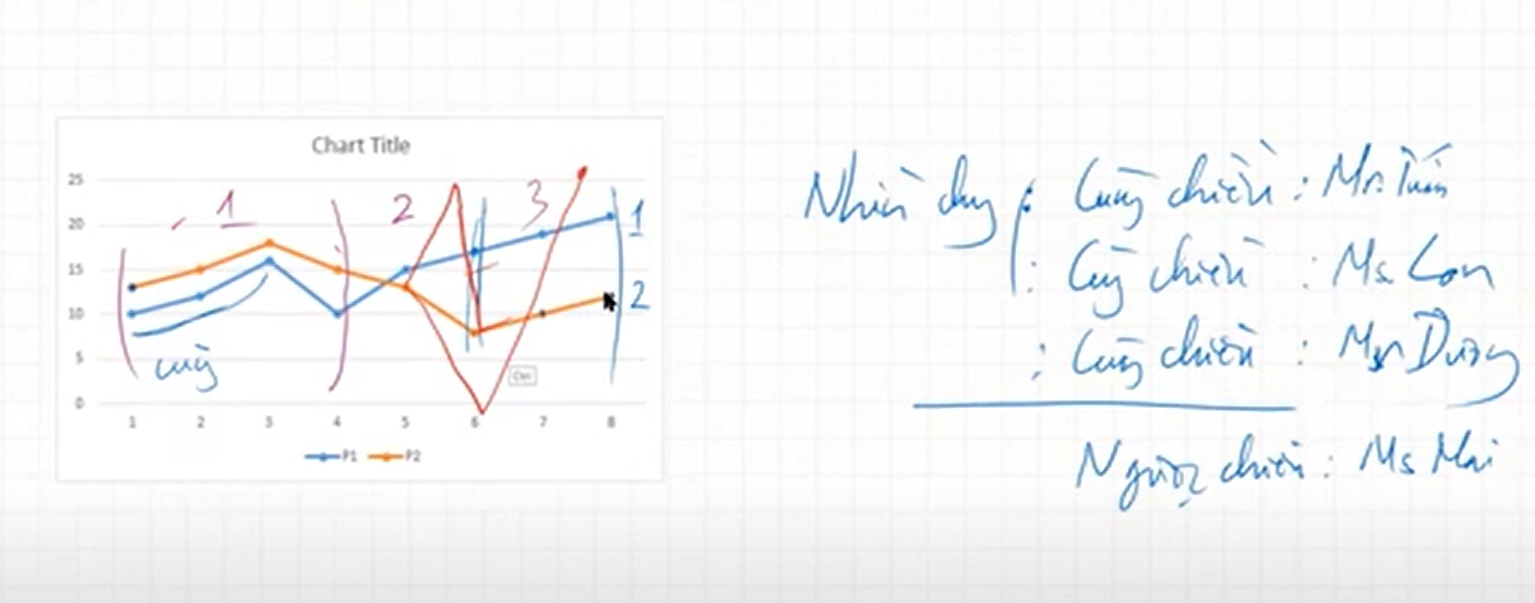 Chart Title
25
20
15
10
5
0
1 2 3 4 5 6 7 8
P1 P2
1 2 3
1
2
cùng
Nhiễu
Cùng chiều : Mr. Tuấn
: Cùng chiều : Ms Lan
: Cùng chiều : Mr Dũng
Ngược chiều : Ms Mai